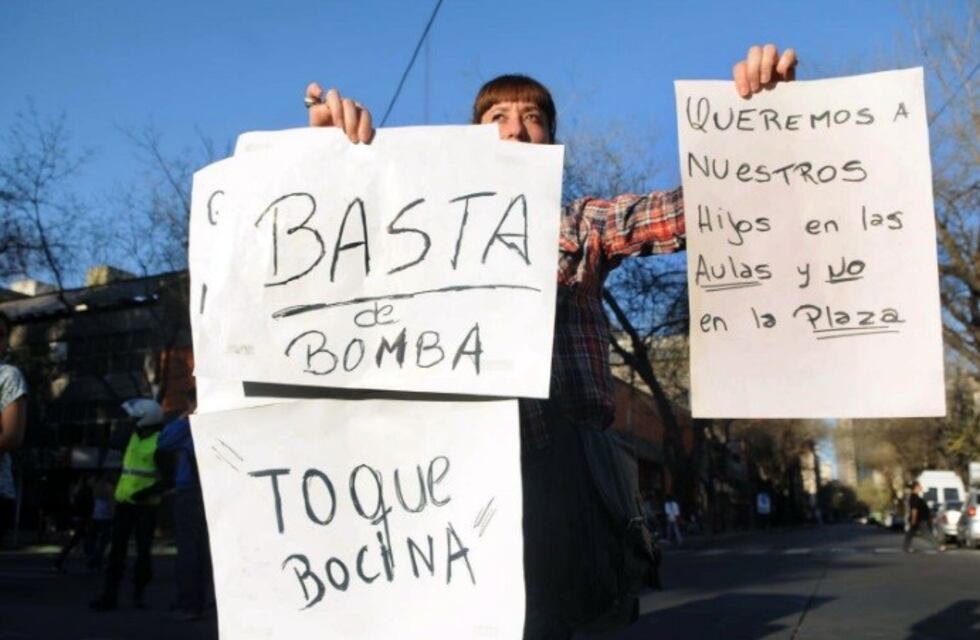 BASTA
de
BOMBA
TOQUE
BOCINA
QUEREMOS A
NUESTROS
Hijos en las
Aulas y No
en la Plaza